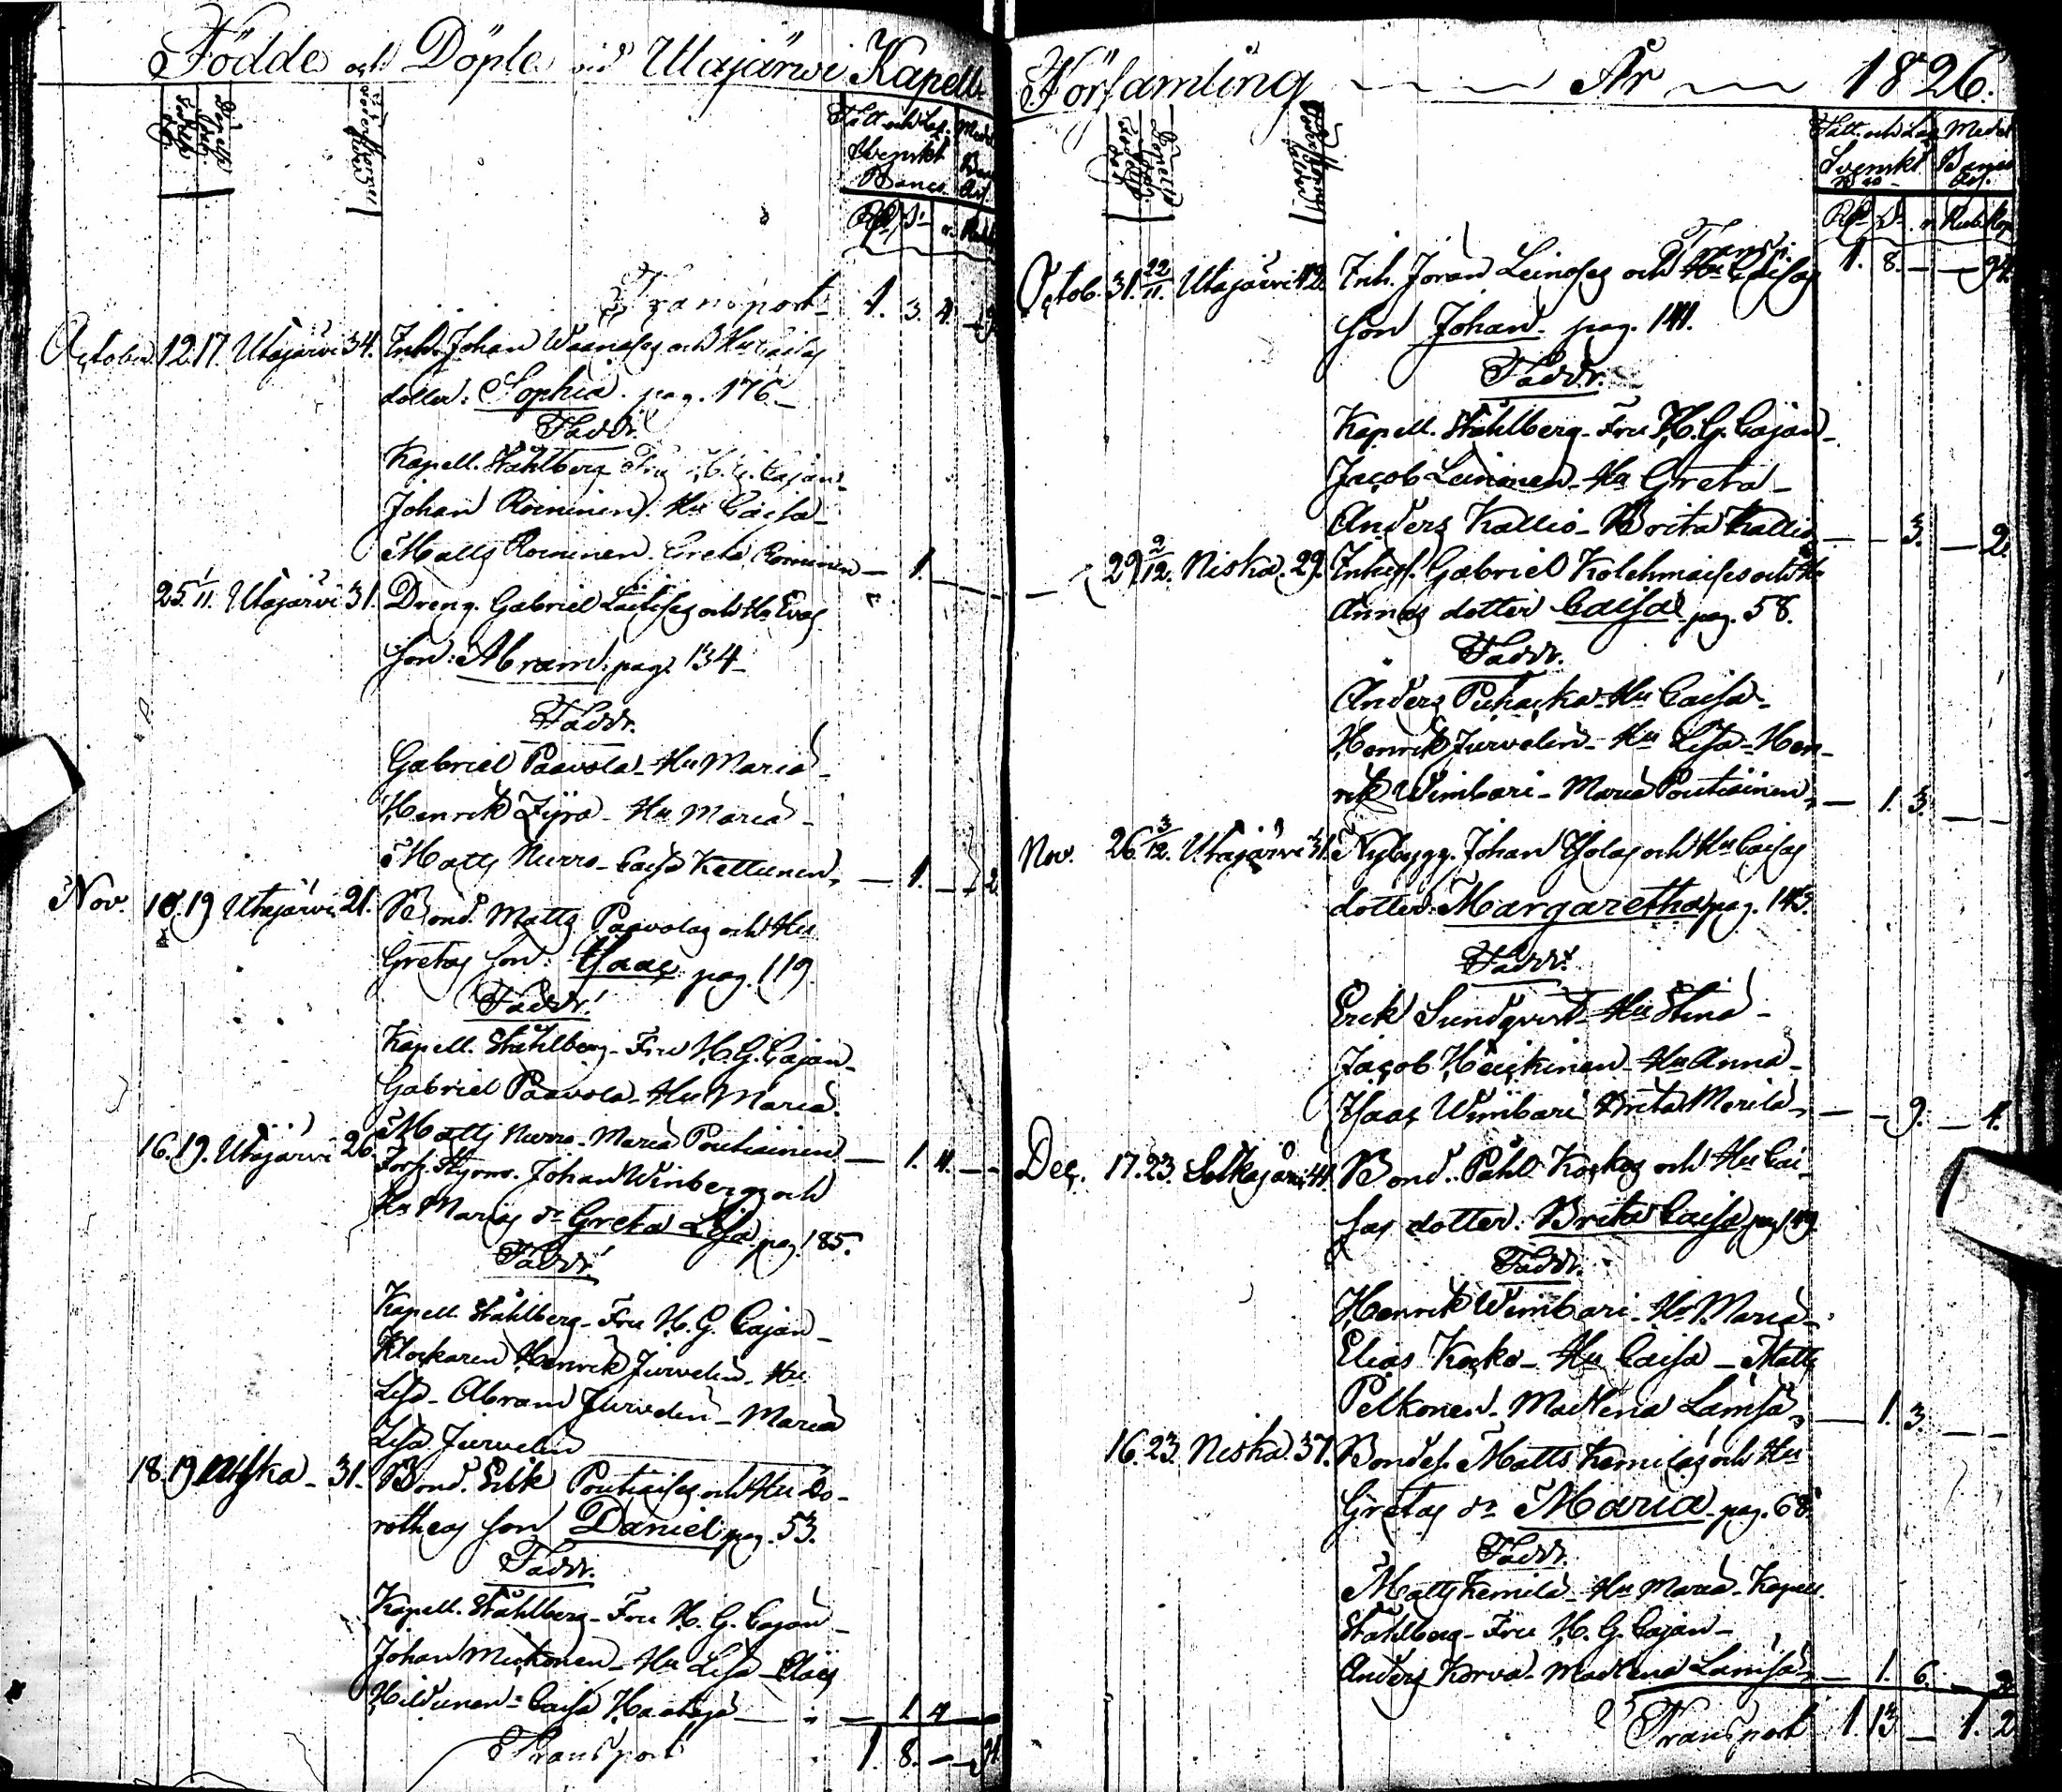 Födde och Döpte vid Utajärwi Kapells
Svenskt
Banco
Transport 1. 3. 4.
October. 12. 17. Utajärvi 34. Inh. Johan Waanases och Hu Caisas
dotter: Sophia. pag. 176
Faddr.
Kapell. Ståhlberg Fru H. G. Cajan
Johan Roininen. Hu Caisa
Matts Roininen. Greta Roininen — 1.
25. 1/11. Utajärvi 31. Dreng. Gabriel Laitises och Hu Evas
son: Abram. pag. 134
Faddr.
Gabriel Paavola. Hu Maria
Henrik Zyra. Hu Maria
Matts Nurro. Caisa Kettunen — 1.
Nov. 10. 19 Utajärvi 21. Bond. Matts Paavolas och Hu
Gretas son: Isaac pag. 119.
Faddr.
Kapell. Ståhlberg. Fru H. G. Cajan
Gabriel Paavola. Hu Maria.
Matts Nurro. Maria Poutiainen — 1. 4.
16. 19. Utajärvi 26. Johan Winbergs och
Hu Marias dr Greta Lisa. pag. 185.
Faddr.
Kapell. Ståhlberg. Fru H. G. Cajan
Klockaren Henrik Jurvelin. Hu
Lisa. Abram Jurvelin. Maria
Lisa Jurvelin
18. 19 Niska. 31. Bond. Erik Poutiaises och Hu Do-
rotheas son Daniel pag. 53.
Faddr.
Kapell. Ståhlberg. Fru H. G. Cajan
Johan Mickonen. Hu Lisa
Hildunen. Caisa Haataja — 1 4
Transport 1. 8.
Församling År 1826.
Svenskt
Transp. 1. 8.
Octob. 31. 22/11. Utajärvi 12. Inh. Joran Leinoses och Hu Caisas
son Johan. pag. 141.
Faddr.
Kapell. Ståhlberg. Fru H. G. Cajan
Jacob Leinonen. Hu Greta
Anders Kallio. Brita Kallio — 3. — 2.
29. 2/12. Niska. 29. Inhys. Gabriel Kolehmaises och Hu
Annas dotter Caisa pag. 58.
Faddr.
Anders Puhacka. Hu Caisa
Henrik Jurvelin. Hu Lisa. Hen-
rik Wimbari. Maria Poutiainen — 1. 3.
Nov. 26. 3/12. Utajärvi 31. Nybygg. Johan Isolas och Hu Caisas
dotter: Margaretha pag. 143.
Faddr.
Erik Sundqvist. Hu Stina
Jacob Heickinen. Hu Anna
Isaac Wimbari Brita Merilä — 9. — 4.
Dec. 17. 23. Sotkajärvi 44. Bond. Påhl Koskos och Hu Cai-
sas dotter: Brita Caisa pag. 149
Faddr.
Henrik Wimbari. Hu Maria
Elias Kosko. Hu Caisa. Matts
Pelkonen. Madlena Lämsä — 1. 3.
16. 23. Niska. 37. Bondes. Matts Kemiläs och Hu
Gretas dr Maria. pag. 68.
Faddr.
Matts Kemilä. Hu Maria. Kapell.
Ståhlberg. Fru H. G. Cajan
Anders Korva. Madlena Lämsä — 1. 6. — 2.
Transport 1. 13. — 1. 2